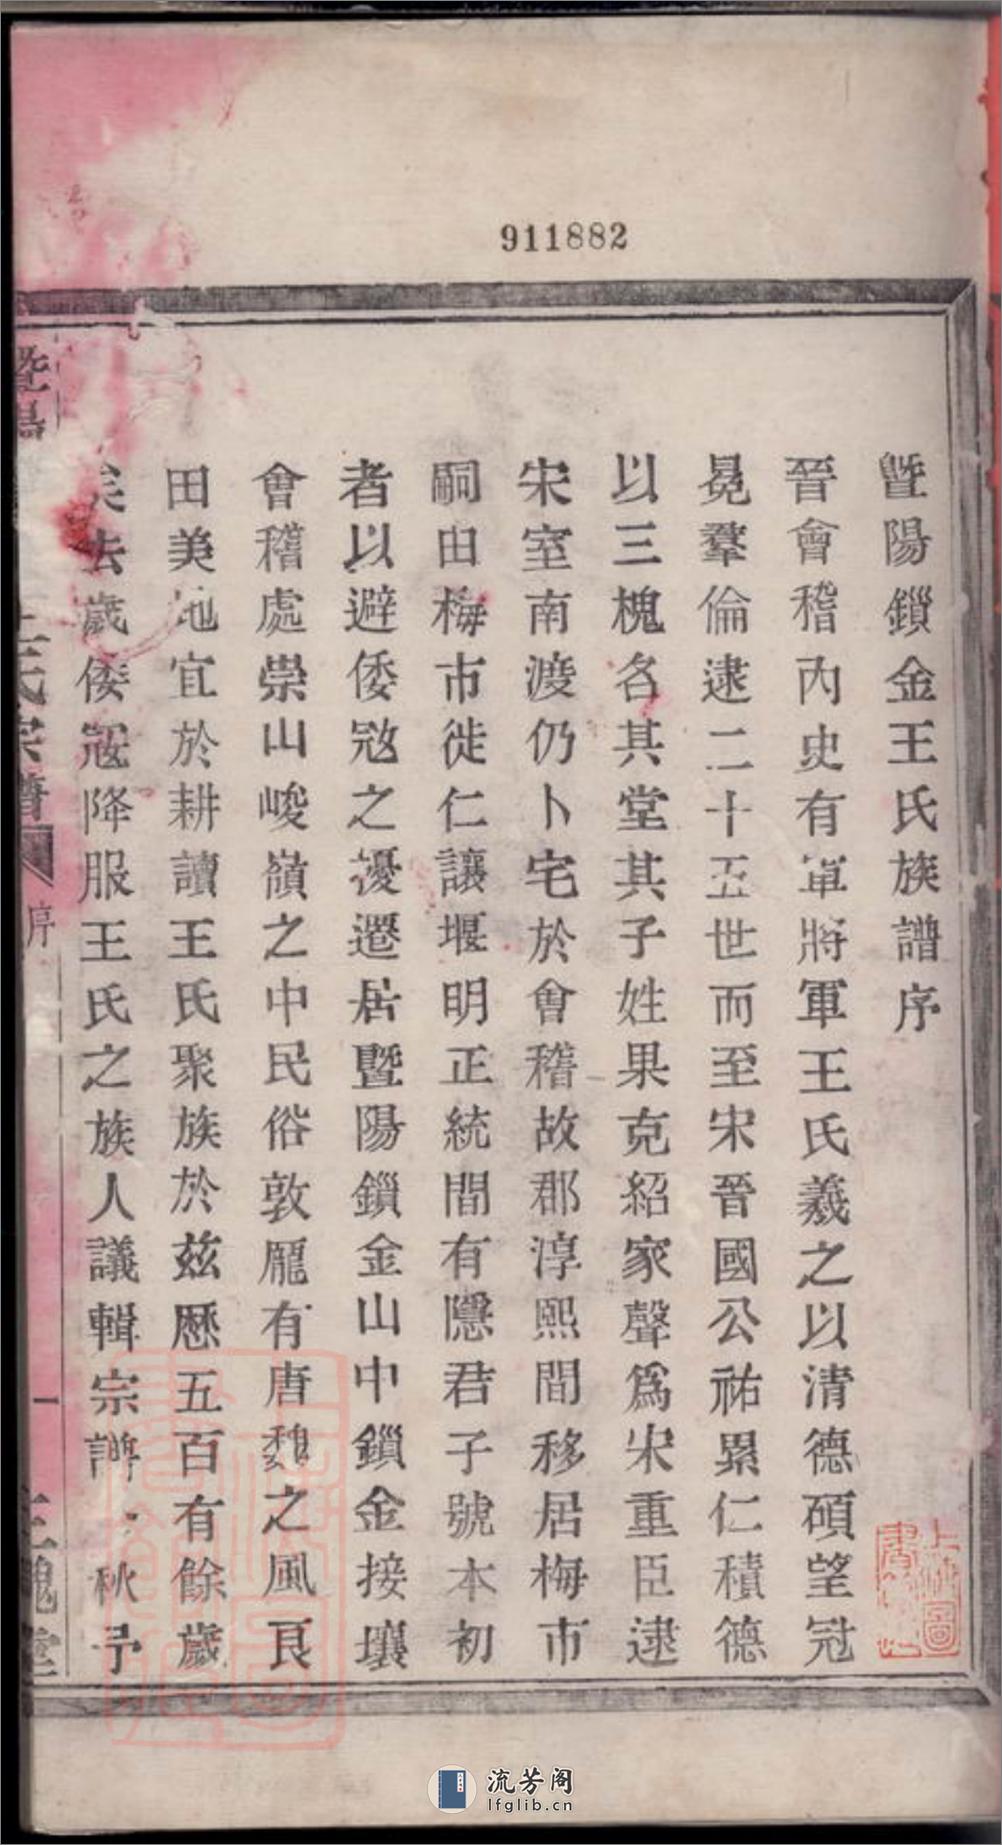 911882
暨陽鎖金王氏族譜序
晉會稽內史有軍將軍王氏羲之以清德碩望冠
冕羣倫逮二十五世而至宋晉國公祐累仁積德
以三槐名其堂其子姓果克紹家聲爲宋重臣逮
宋室南渡仍卜宅於會稽故郡淳熙間移居梅市
嗣由梅市徙仁讓堰明正統間有隱君子號本初
者以避倭宼之擾遷居暨陽鎖金山中鎖金接壤
會稽處崇山峻嶺之中民俗敦龎有唐魏之風艮
田美地宜於耕讀王氏聚族於茲歷五百有餘歲
矣去歲倭宼降服王氏之族人議輯宗譜 秋予
暨陽
王氏宗譜
序
一
三槐堂
上海圖
流芳阁
lfglib.cn